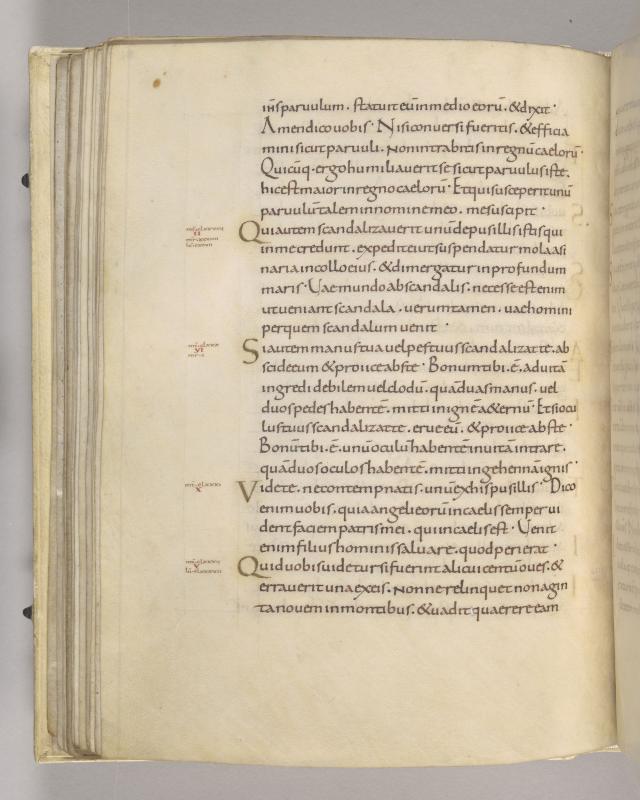 ihs paruulum. statuit eū in medio eorū. & dixit.
Amen dico uobis. Nisi conuersi fueritis. & efficia
mini sicut paruuli. Non intrabitis in regnū caelorū.
Quicūq. ergo humiliauerit se sicut paruulus iste.
hic est maior in regno caelorū. Et qui susceperit unū
paruulū talem in nomine meo. me suscipit.
Qui autem scandalizauerit unū de pusillis istis qui
in me credunt. expedit ei ut suspendatur mola asi
naria in collo eius. & dimergatur in profundum
maris. Uae mundo ab scandalis. necesse est enim
ut ueniant scandala. uerumtamen. uae homini
per quem scandalum uenit.
Si autem manus tua uel pes tuus scandalizat te. ab
scide eum & proiice abs te. Bonum tibi. ē. ad uitā
ingredi debilem uel clodū. quā duas manus. uel
duos pedes habentē. mitti in ignē aeternū. Et si ocu
lus tuus scandalizat te. erue eū. & proiice abs te.
Bonū tibi. ē. unū oculū habentē in uitā intrare.
quā duos oculos habentē. mitti in gehenna ignis.
Videte. ne contempnatis. unū ex his pusillis. Dico
enim uobis. quia angeli eorū in caelis semper ui
dent faciem patris mei. qui in caelis est. Uenit
enim filius hominis saluare. quod perierat.
Quid uobis uidetur si fuerint alicui centū oues. &
errauerit una ex eis. Nonne relinquet nonagin
ta nouem in montibus. & uadit quaerere eam